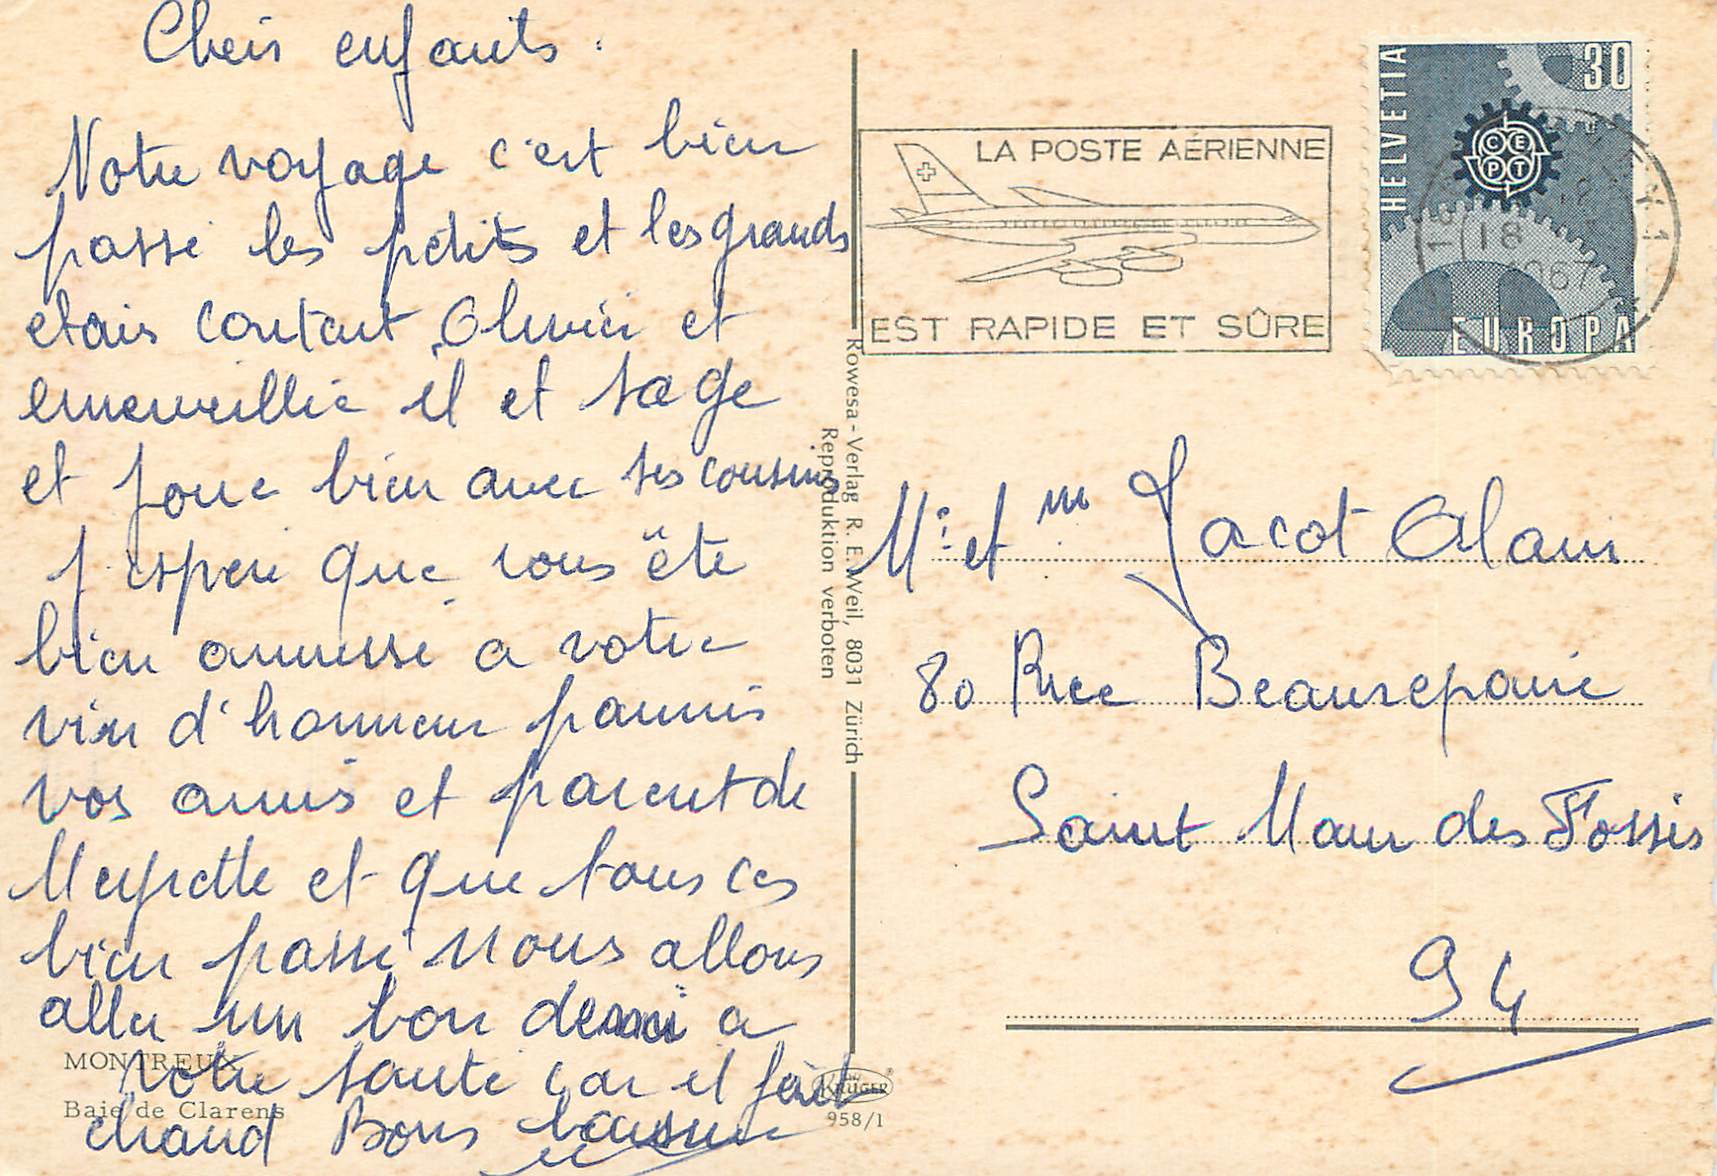 Chers enfants.
Notre voyage c'est bien
passé les petits et les grands
etais contant, Olivier et
emerveillie il et sage
et joue bien avec ses cousins
J'espere que vous ête
bien amusse a votre
vin d'honneur parmis
vos amis et parent de
Meyrette et que tous ces
bien passé nous allons
aller un bon demi a
votre santé car il fait
chaud Bons
MONTREUX
Baie de Clarens
Rowesa - Verlag R. E. Weil, 8031 Zürich
Reproduktion verboten
KRUGER
958/1
LA POSTE AÉRIENNE
EST RAPIDE ET SÛRE
HELVETIA
30
CEPT
EUROPA
18
1967
Mr et Mm Jacot Alain
80 Rue Beaurepaire
Saint Maur des Fossés
94